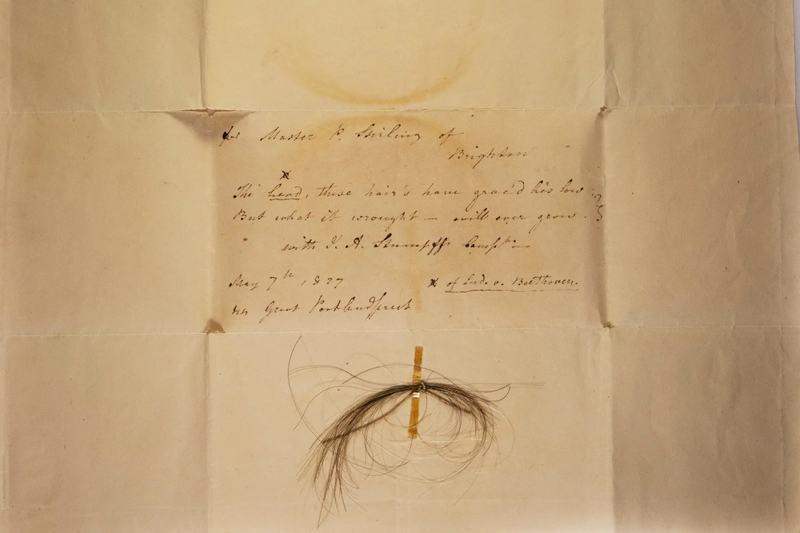 for Master P. Stirling of
Brighton
x
The head, these hair's have grac'd lies low
But what it wrought – will ever grow.
with J. A. Stumpff's Compts:
May 7th 1827
x of Lud. v. Beethoven.
Great Portland Street